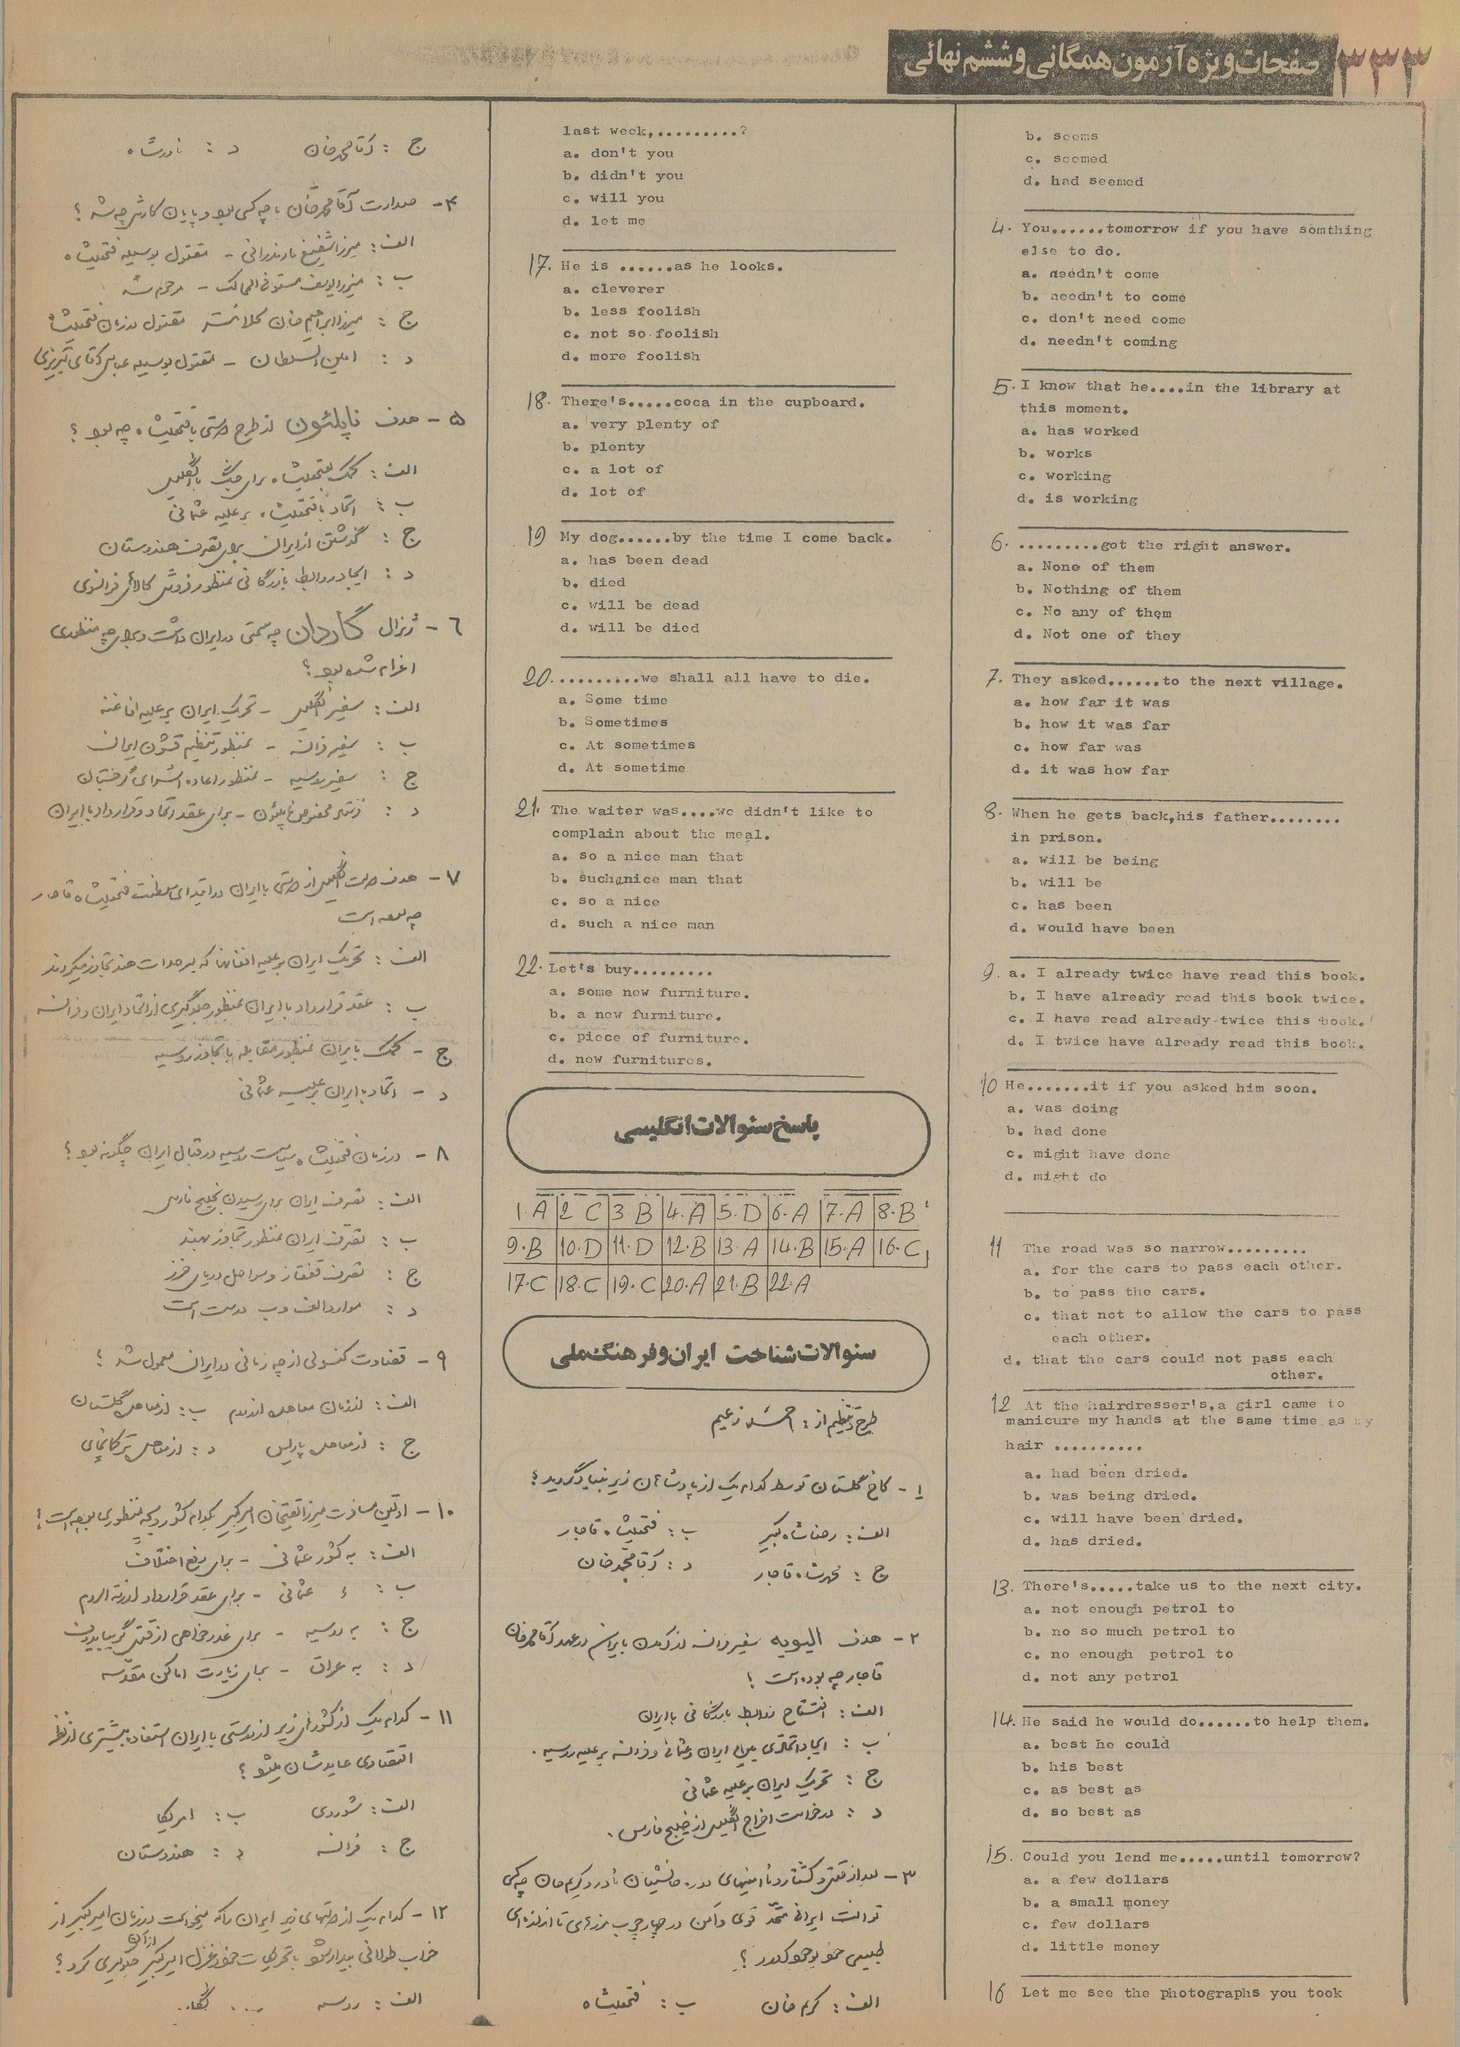 صفحات ویژه آزمون همگانی و ششم نهائی
۳۳۳
b. seems
c. seemed
d. had seemed
4. You......tomorrow if you have somthing
else to do.
a. needn't come
b. needn't to come
c. don't need come
d. needn't coming
5. I know that he....in the library at
this moment.
a. has worked
b. works
c. working
d. is working
6. .........got the right answer.
a. None of them
b. Nothing of them
c. No any of them
d. Not one of they
7. They asked......to the next village.
a. how far it was
b. how it was far
c. how far was
d. it was how far
8. When he gets back,his father........
in prison.
a. will be being
b. will be
c. has been
d. would have been
9. a. I already twice have read this book.
b. I have already read this book twice.
c. I have read already twice this book.
d. I twice have already read this book.
10 He.......it if you asked him soon.
a. was doing
b. had done
c. might have done
d. might do
11 The road was so narrow.........
a. for the cars to pass each other.
b. to pass the cars.
c. that not to allow the cars to pass
each other.
d. that the cars could not pass each
other.
12 At the hairdresser's,a girl came to
manicure my hands at the same time as my
hair ..........
a. had been dried.
b. was being dried.
c. will have been dried.
d. has dried.
13. There's.....take us to the next city.
a. not enough petrol to
b. no so much petrol to
c. no enough petrol to
d. not any petrol
14. He said he would do......to help them.
a. best he could
b. his best
c. as best as
d. so best as
15. Could you lend me.....until tomorrow?
a. a few dollars
b. a small money
c. few dollars
d. little money
16 Let me see the photographs you took
last week,.........?
a. don't you
b. didn't you
c. will you
d. let me
17. He is ......as he looks.
a. cleverer
b. less foolish
c. not so foolish
d. more foolish
18. There's.....coca in the cupboard.
a. very plenty of
b. plenty
c. a lot of
d. lot of
19 My dog......by the time I come back.
a. has been dead
b. died
c. will be dead
d. will be died
20. .........we shall all have to die.
a. Some time
b. Sometimes
c. At sometimes
d. At sometime
21. The waiter was....we didn't like to
complain about the meal.
a. so a nice man that
b. such nice man that
c. so a nice
d. such a nice man
22. Let's buy.........
a. some new furniture.
b. a new furniture.
c. piece of furniture.
d. new furnitures.
پاسخ سئوالات انگلیسی
1.A 2 C 3.B 4.A 5.D 6.A 7.A 8.B
9.B 10.D 11.D 12.B 13.A 14.B 15.A 16.C
17.C 18.C 19.C 20.A 21.B 22.A
سئوالات شناخت ایران و فرهنگ ملی
طرح و تنظیم از: احمد زعیم
۱- کاخ گلستان توسط کدام یک از پادشاهان زیر بنیاد گردید؟
الف: رضاشاه کبیر ب: فتحعلیشاه قاجار
ج: محمدشاه قاجار د: آقامحمدخان
۲- هدف الیویه سفیر فرانسه از آمدن بایران در عهد آقامحمدخان
قاجار چه بوده است؟
الف: افتتاح روابط بازرگانی با ایران
ب: ایجاد اتحادی میان ایران و عثمانی و فرانسه بر علیه روسیه.
ج: تحریک ایران بر علیه عثمانی
د: درخواست اخراج انگلیس از خلیج فارس.
۳- بعد از قتل و کشتار و ناامنیهای دوره جانشینان نادر و کریم خان چه کسی
توانست ایرانی متحد قوی و امن در چهارچوب مرزهای تا اندازه‌ای
طبیعی خود بوجود آورد؟
الف: کریم خان ب: فتحعلیشاه
ج: آقامحمدخان د: نادرشاه
۴- صدارت آقامحمدخان با چه کسی بود و پایان کارش چه شد؟
الف: میرزا شفیع مازندرانی - مقتول بوسیله فتحعلیشاه
ب: میرزا یوسف مستوفی الممالک - مرحوم شد
ج: میرزا ابراهیم خان کلانتر مقتول در زمان فتحعلیشاه
د: امین السلطان - مقتول بوسیله عباس آقای تبریزی
۵- هدف ناپلئون از طرح دوستی با فتحعلیشاه چه بود؟
الف: کمک بفتحعلیشاه برای جنگ با انگلیس
ب: اتحاد با فتحعلیشاه بر علیه عثمانی
ج: گذشتن از ایران برای تصرف هندوستان
د: ایجاد روابط بازرگانی بمنظور فروش کالای فرانسوی
۶- ژنرال گاردان چه سمتی در ایران داشت و برای چه منظوری
اعزام شده بود؟
الف: سفیر انگلیس - تحریک ایران بر علیه افاغنه
ب: سفیر فرانسه - بمنظور تنظیم قشون ایران
ج: سفیر روسیه - بمنظور اعاده اسرای گرجستان
د: فرستاده مخصوص ناپلئون - برای عقد اتحاد و قرارداد با ایران
۷- هدف دولت انگلیس از دوستی با ایران در ابتدای سلطنت فتحعلیشاه قاجار
چه بوده است
الف: تحریک ایران بر علیه افغانها که بسرحدات هند تجاوز میکردند
ب: عقد قرارداد با ایران بمنظور جلوگیری از اتحاد ایران و فرانسه
ج- کمک بایران بمنظور مقابله با تجاوز روسیه
د- اتحاد با ایران بر علیه عثمانی
۸- در زمان فتحعلیشاه سیاست روسیه در قبال ایران چگونه بود؟
الف: تصرف ایران برای رسیدن بخلیج فارس
ب: تصرف ایران بمنظور تجاوز بهند
ج: تصرف قفقاز و سواحل دریای خزر
د: موارد الف و ب درست است
۹- قضاوت کنسولی از چه زمانی در ایران معمول شد؟
الف: از زمان معاهده ارزروم ب: از معاهده گلستان
ج: از معاهده پاریس د: از معاهده ترکمانچای
۱۰- اولین مسافرت میرزا تقیخان امیرکبیر بکدام کشور و بچه منظوری بوده است؟
الف: به کشور عثمانی - برای رفع اختلاف
ب: ء عثمانی - برای عقد قرارداد ارزنة الروم
ج: به روسیه - برای عذرخواهی از قتل گریبایدوف
د: به عراق - برای زیارت اماکن مقدسه
۱۱- کدام یک از کشورهای زیر از دوستی با ایران استفاده بیشتری از نظر
اقتصادی عایدشان میشود؟
الف: شوروی ب: امریکا
ج: فرانسه د: هندوستان
۱۲- کدام یک از دولتهای زیر ایران را که میخواست در زمان امیرکبیر از
خواب طولانی بیدار شود با تحریکات خود و عزل امیرکبیر از آن جلوگیری کرد؟
الف: روسیه